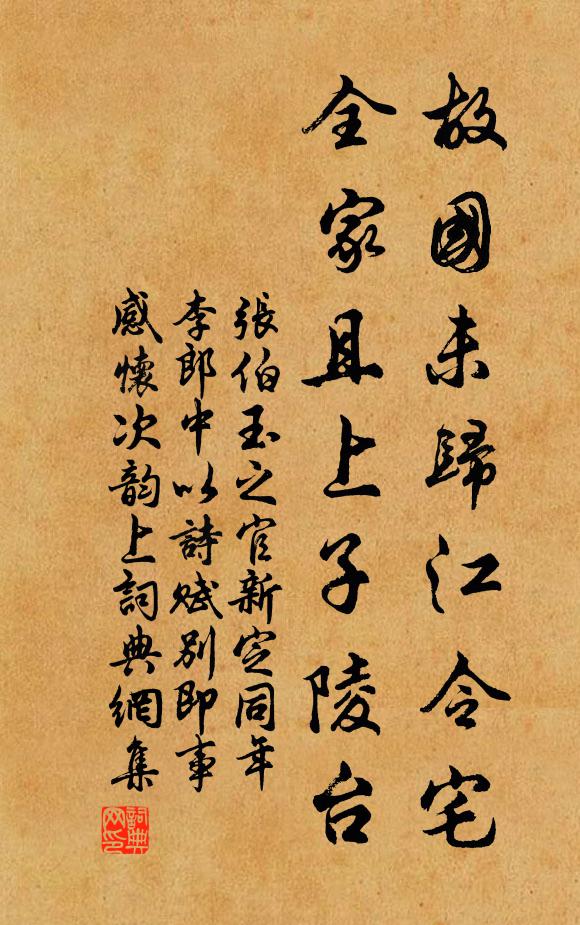 故國未歸江令宅
全家且上子陵台
張伯玉之官新定同年
李郎中以詩賦別即事
感懷次韵上詞典網集
詞典
网印